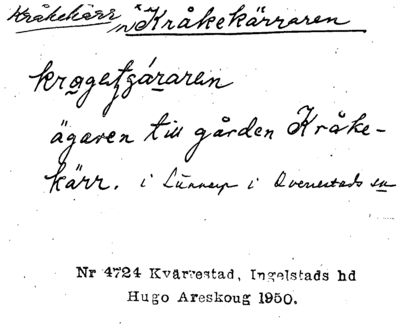 Kråkekärr Kråkekärraren
krågetgáraren
ägaren till gården Kråke-
kärr. i i sn
Nr 4724 Kvärrestad, Ingelstads hd
Hugo Areskoug 1950.